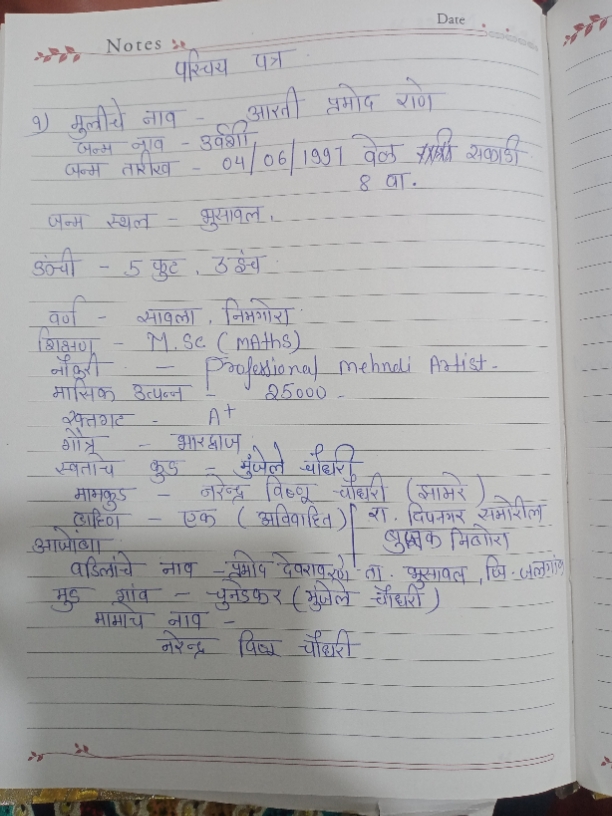 Date
Notes
परिचय पत्र
१) मुलीचे नाव - आरती प्रमोद राणे
जन्म नाव - उर्वशी
जन्म तारीख - 04/06/1997 वेळ सकाळी
8 वा.
जन्म स्थल - भुसावल.
उंची - 5 फुट . 3 इंच
वर्ण - सावला . निमगोरा
शिक्षण - M.Sc (MATHS)
नौकरी - Professional Mehndi Artist -
मासिक उत्पन्न - 25000 -
रक्तगट - A+
गौत्र - भारद्वाज
स्वताचे कुड - मुंजेले चौधरी
मामकुड - नरेन्द्र विष्णू चौधरी (सामरे)
बहिण - एक (अविवाहित) रा. दिपनगर समोरील
आजोबा
वडिलांचे नाव - प्रमोद देवराव राणे ता. भुसावल, जि. जलगांव
मुड गांव - (मुंजेले चौधरी)
मामाचे नाव -
नरेन्द्र विष्णू चौधरी